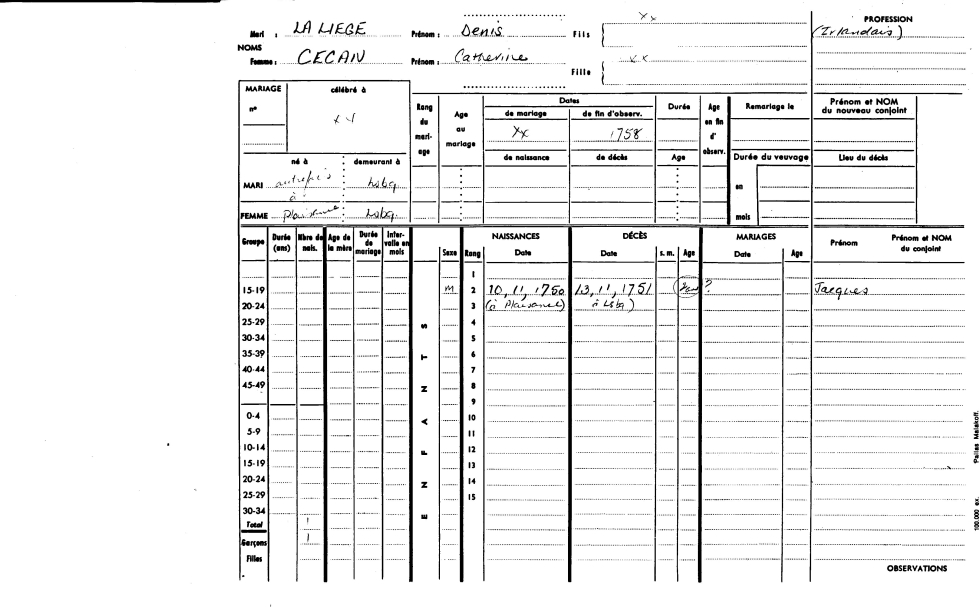 Mari : LA LIEGE Prénom : Denis Fils xx PROFESSION
(Irlandais)
NOMS
Femme : CECAIN Prénom : Catherine Fille xx
MARIAGE célébré à
n° xx
Rang du mariage Age au mariage Dates Durée Age en fin d'observ. Remariage le Prénom et NOM du nouveau conjoint
de mariage de fin d'observ.
xx 1758
de naissance de décès Age Durée du veuvage Lieu du décès
né à demeurant à
MARI autrefois à Lsbg. en
FEMME Plaisance Lsbg. mois
Groupe Durée (ans) Nbre de nais. Age de la mère Durée de mariage Intervalle en mois Sexe Rang NAISSANCES Date DÉCÈS Date s. m. Age MARIAGES Date Age Prénom Prénom et NOM du conjoint
1
15-19 M 2 10, 11, 1750 13, 11, 1751 ? Jacques
20-24 3 (à Plaisance) à Lsbg)
25-29 4
30-34 5
35-39 6
40-44 7
45-49 8
9
0-4 10
5-9 11
10-14 12
15-19 13
20-24 14
25-29 15
30-34
ENFANTS
Total 1
Garçons 1
Filles
OBSERVATIONS
100.000 ex. Pairies Malakoff.